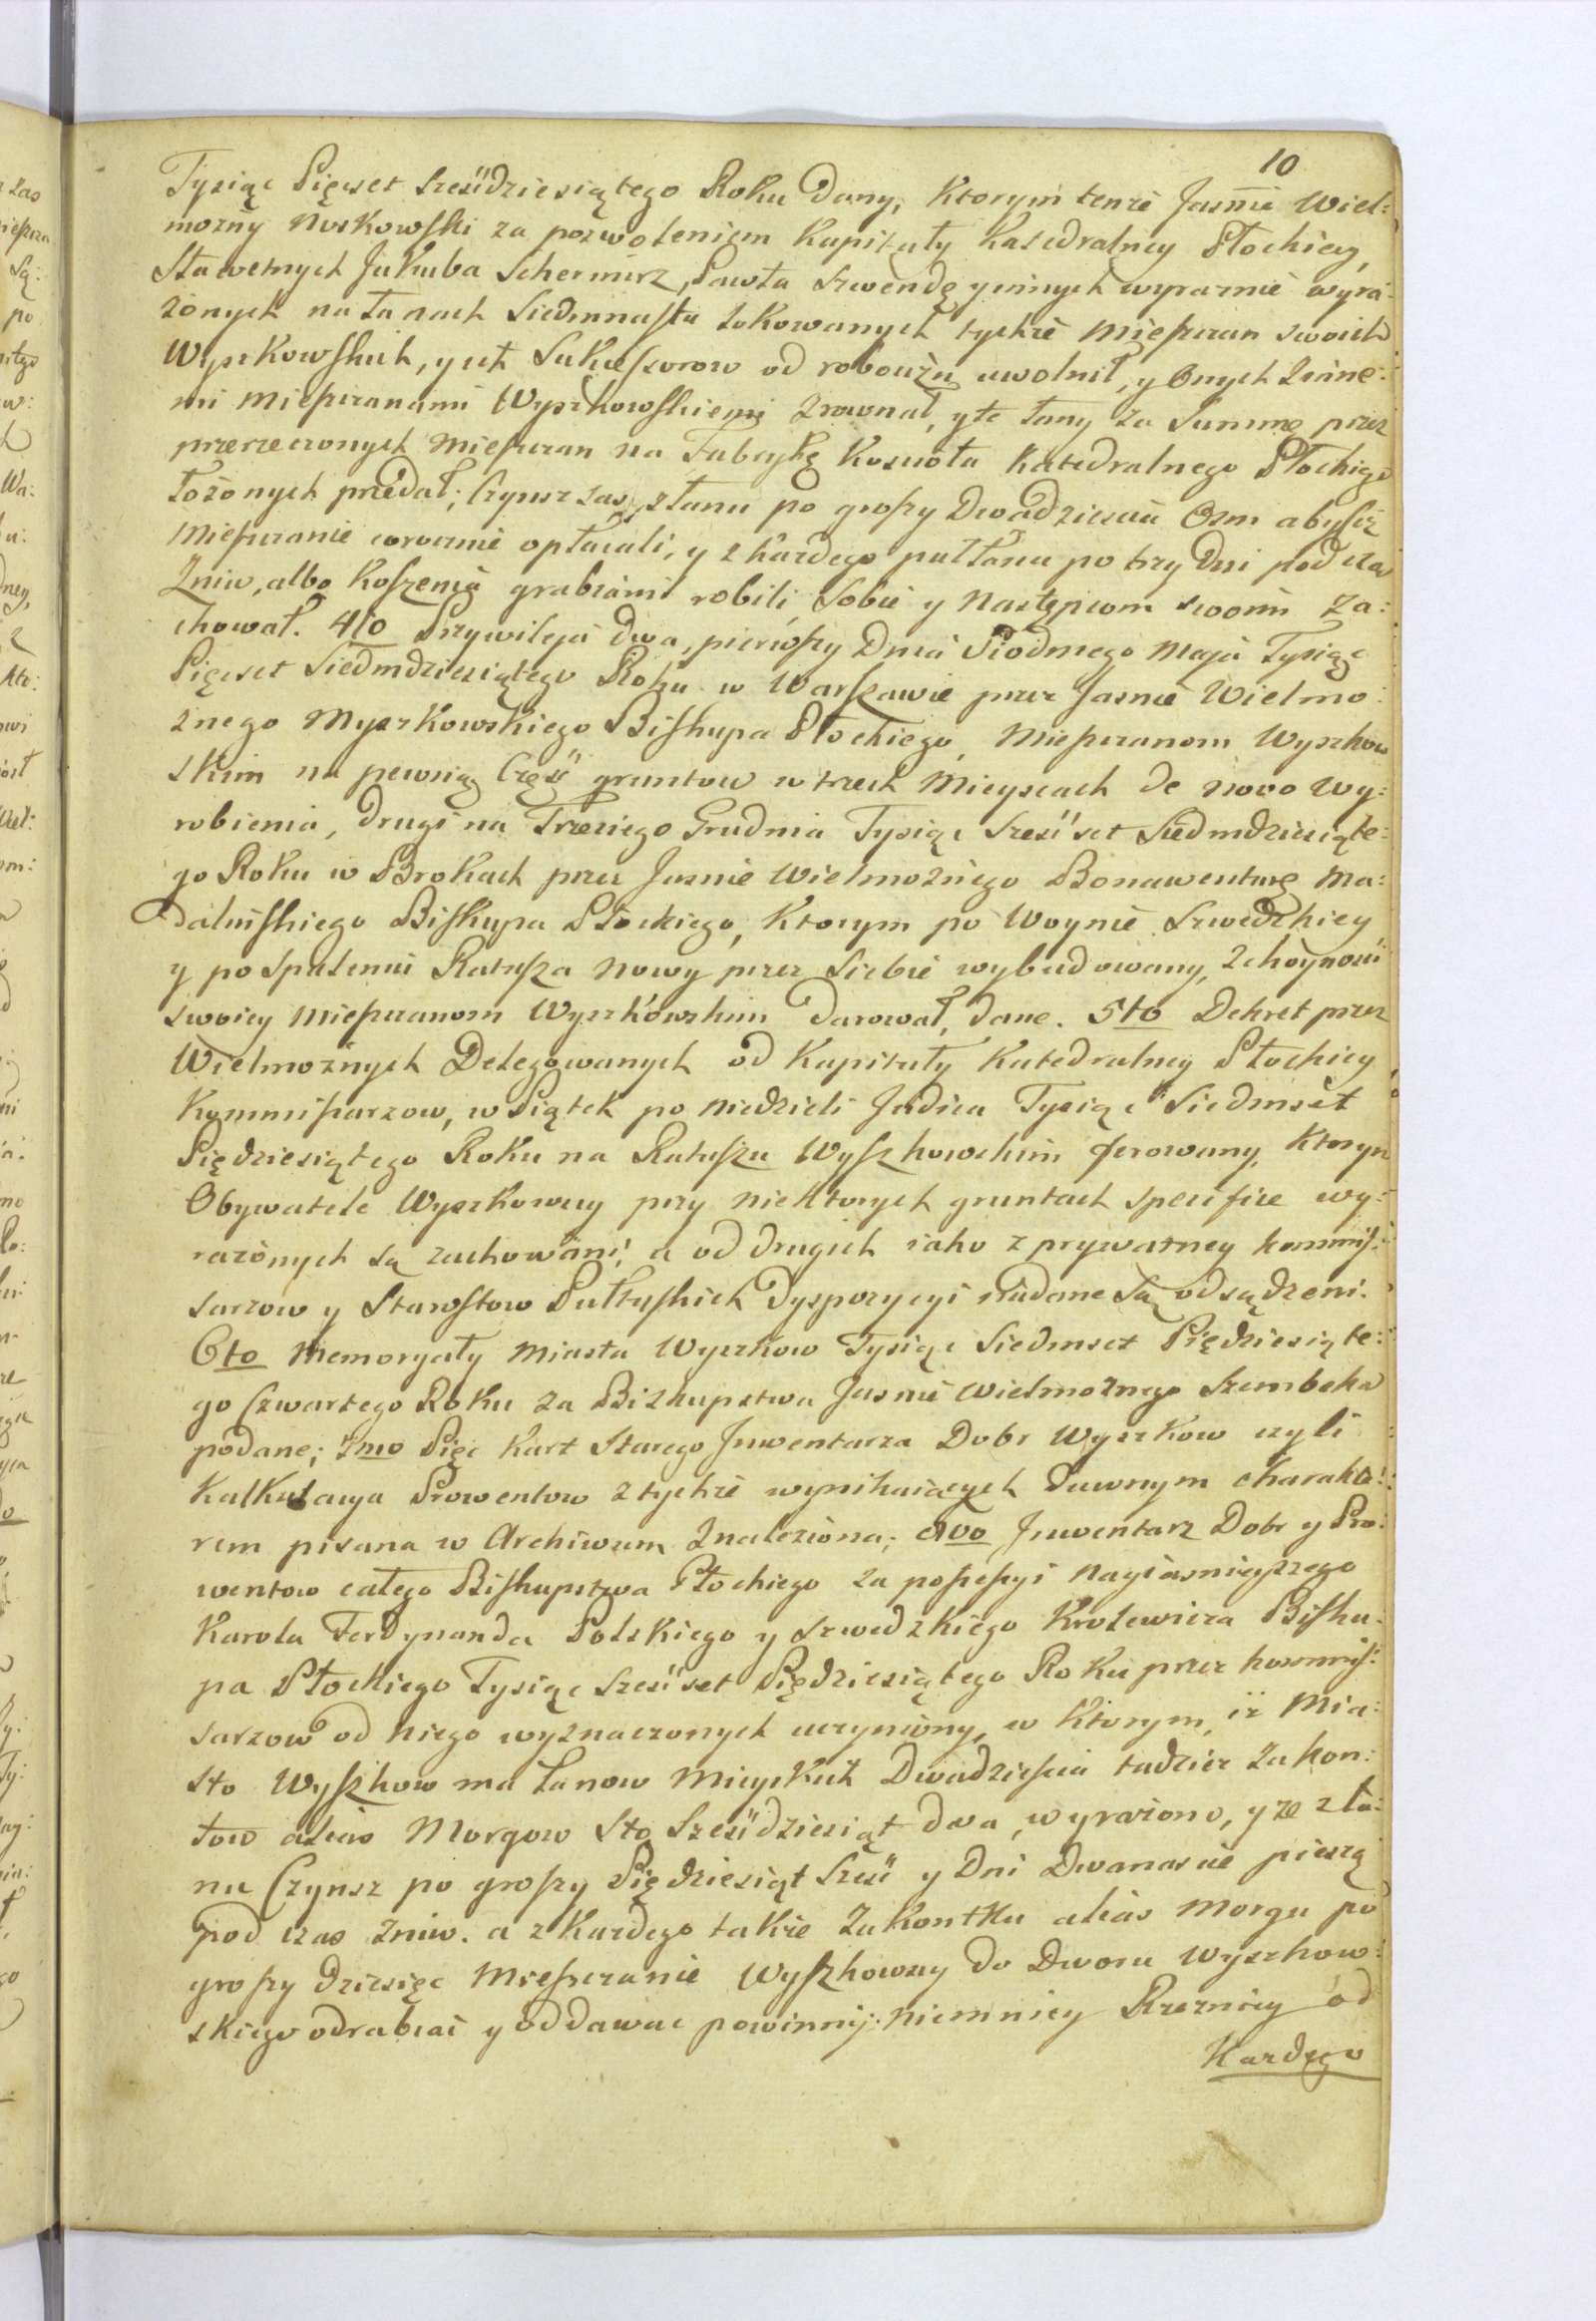 10
Tysiąc Pięcset Sześćdziesiątego Roku Dany, Ktorym tenże Jasnie Wiel:
możny Noskowski za pozwoleniem Kapituły Katedralney Płockiey,
Sławetnych Jakuba Schermirz, Pawła Szwendę y innych wyraznie wyra:
żonych na Łanach Siedmnastu lokowanych tychże Mieszczan swoich
Wyszkowskich, y ich Sukcessorow od robocizn uwolnił, y Onych z inne:
mi Mieszczanami Wyszkowskiemi zrownał, y te Łany za Summę przez
przerzeczonych Mieszczan na Fabrykę Koscioła Katedralnego Płockigo
łożonych przedał; Czynsz zas z łanu po groszy Dwadziescia Osm abyście
Mieszczanie corocznie opłacali, y z każdego puł Łanu po trzy Dni pod czas
Zniw, albo Koszenia grabiami robili, Sobie y Następcom swoim za:
chował. 4to Przywileja dwa, pierwszy Dnia Siodmego Maja Tysiąc
Pięcset Siedmdziesiątego Roku w Warszawie przez Jasnie Wielmo:
żnego Myszkowskiego Biskupa Płockiego, Mieszczanom Wyszkow
skim na pewnią Częsć gruntow w trzech Mieyscach de novo wy:
robienia, drugi na Trzeciego Grudnia Tysiąc Sześćset Siedmdziesiąte:
go Roku w Brokach przez Jasnie Wielmożnego Bonawenturę Ma:
dalinskiego Biskupa Płockiego, Ktorym po Woynie Szwedzkiey
y po spaleniu Ratusza nowy przez Siebie wybudowany, z choynosci
swoiey Mieszczanom Wyszkowskim Darował, dane. 5to Dekret przez
Wielmożnych Delegowanych od Kapituły Katedralney Płockiey
Kommissarzow, w Piątek po niedzieli Judica Tysiąc Siedmset
Pięćdziesiątego Roku na Ratuszu Wyszkowskim ferowany, Ktorym
Obywatele Wyszkowscy przy niektorych gruntach specifice wy:
rażonych są zachowani, a od drugich iako z prywatney kommis:
sarzow y Starostow Pułtuskich Dyspozycyi nadane są odsądzeni.
6to Memoryały Miasta Wyszkow Tysiąc Siedmset Pięćdziesiąte:
go Czwartego Roku za Biskupstwa Jasnie Wielmożnego Szembeka
podane; 7mo Pięć Kart Starego Inwentarza Dobr Wyszkow czyli
Kalkulacya Prowentow z tychże wynikaiących dawnym charakte:
rem pisana w Archiwum znaleziona; 8vo Inwentarz Dobr y Pro:
wentow całego Biskupstwa Płockiego za possessyi Nayiasnieyszego
Karola Ferdynanda Polskiego y Szwedzkiego Krolewicza Bisku:
pa Płockiego Tysiąc Sześćset Pięćdziesiątego Roku przez kommis:
sarzow od niego wyznaczonych uczyniony, w Ktorym, iż Mia:
sto Wyszkow ma Łanow Mieyskich Dwadziescia tudzież Zakon:
tow alias Morgow Sto Sześćdziesiąt dwa, wyrażono, y ze z Ła:
nu Czynsz po groszy Pięćdziesiąt Sześć y Dni Dwanascie pieszą
pod czas zniw. a z Każdego także Zakontku alias Morgu po
groszy dziesięc Mieszczanie Wyszkowscy do Dworu Wyszkow:
skiego odrabiać y oddawac powinni; niemniey Rzeznicy od
Kazdego